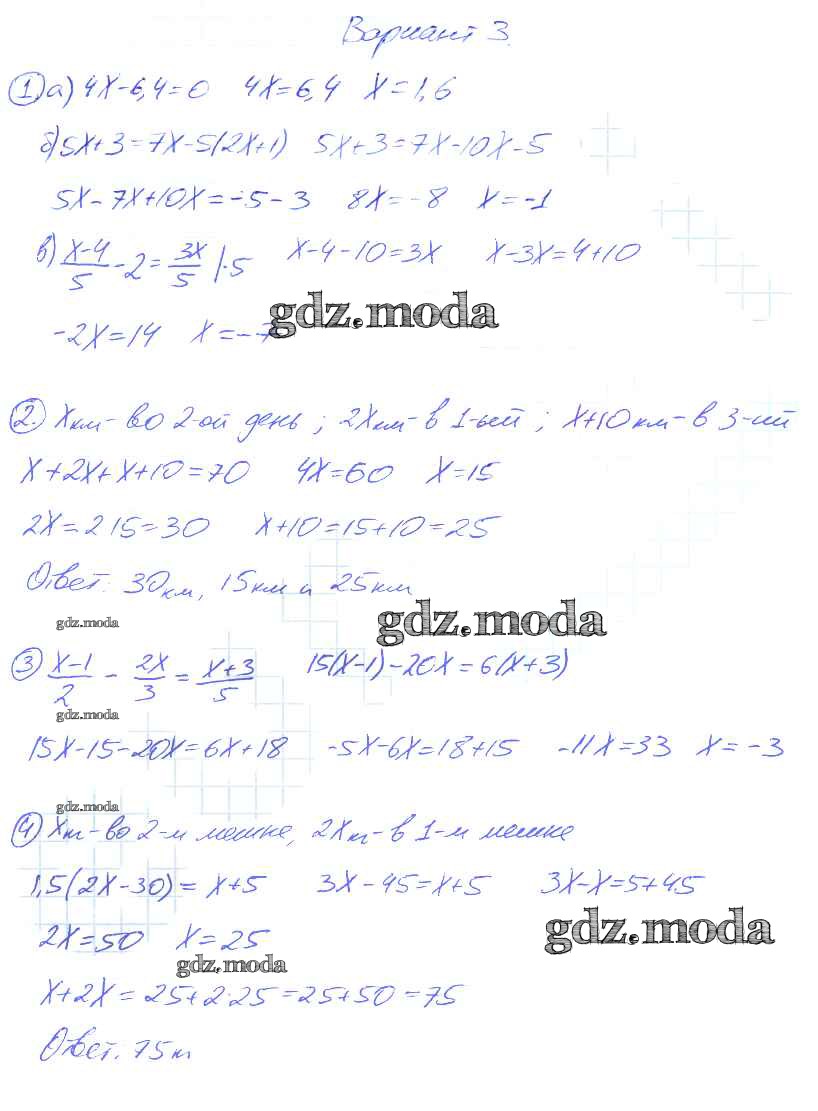 Вариант 3.
1 а) 4x-6,4=0 4x=6,4 x=1,6
б) 5x+3=7x-5(2x+1) 5x+3=7x-10x-5
5x-7x+10x=-5-3 8x=-8 x=-1
в) (x-4)/5 - 2 = 3x/5 |·5 x-4-10=3x x-3x=4+10
gdz.moda
-2x=14 x=-7
2. x км - во 2-ой день; 2x км - в 1-ый; x+10 км - в 3-ий
x+2x+x+10=70 4x=60 x=15
2x=2·15=30 x+10=15+10=25
Ответ: 30 км, 15 км и 25 км
gdz.moda gdz.moda
3 (x-1)/2 - 2x/3 = (x+3)/5 15(x-1)-20x=6(x+3)
gdz.moda
15x-15-20x=6x+18 -5x-6x=18+15 -11x=33 x=-3
gdz.moda
4 x кг - во 2-м мешке, 2x кг - в 1-м мешке
1,5(2x-30)=x+5 3x-45=x+5 3x-x=5+45
gdz.moda
2x=50 x=25
gdz.moda
x+2x=25+2·25=25+50=75
Ответ. 75 кг